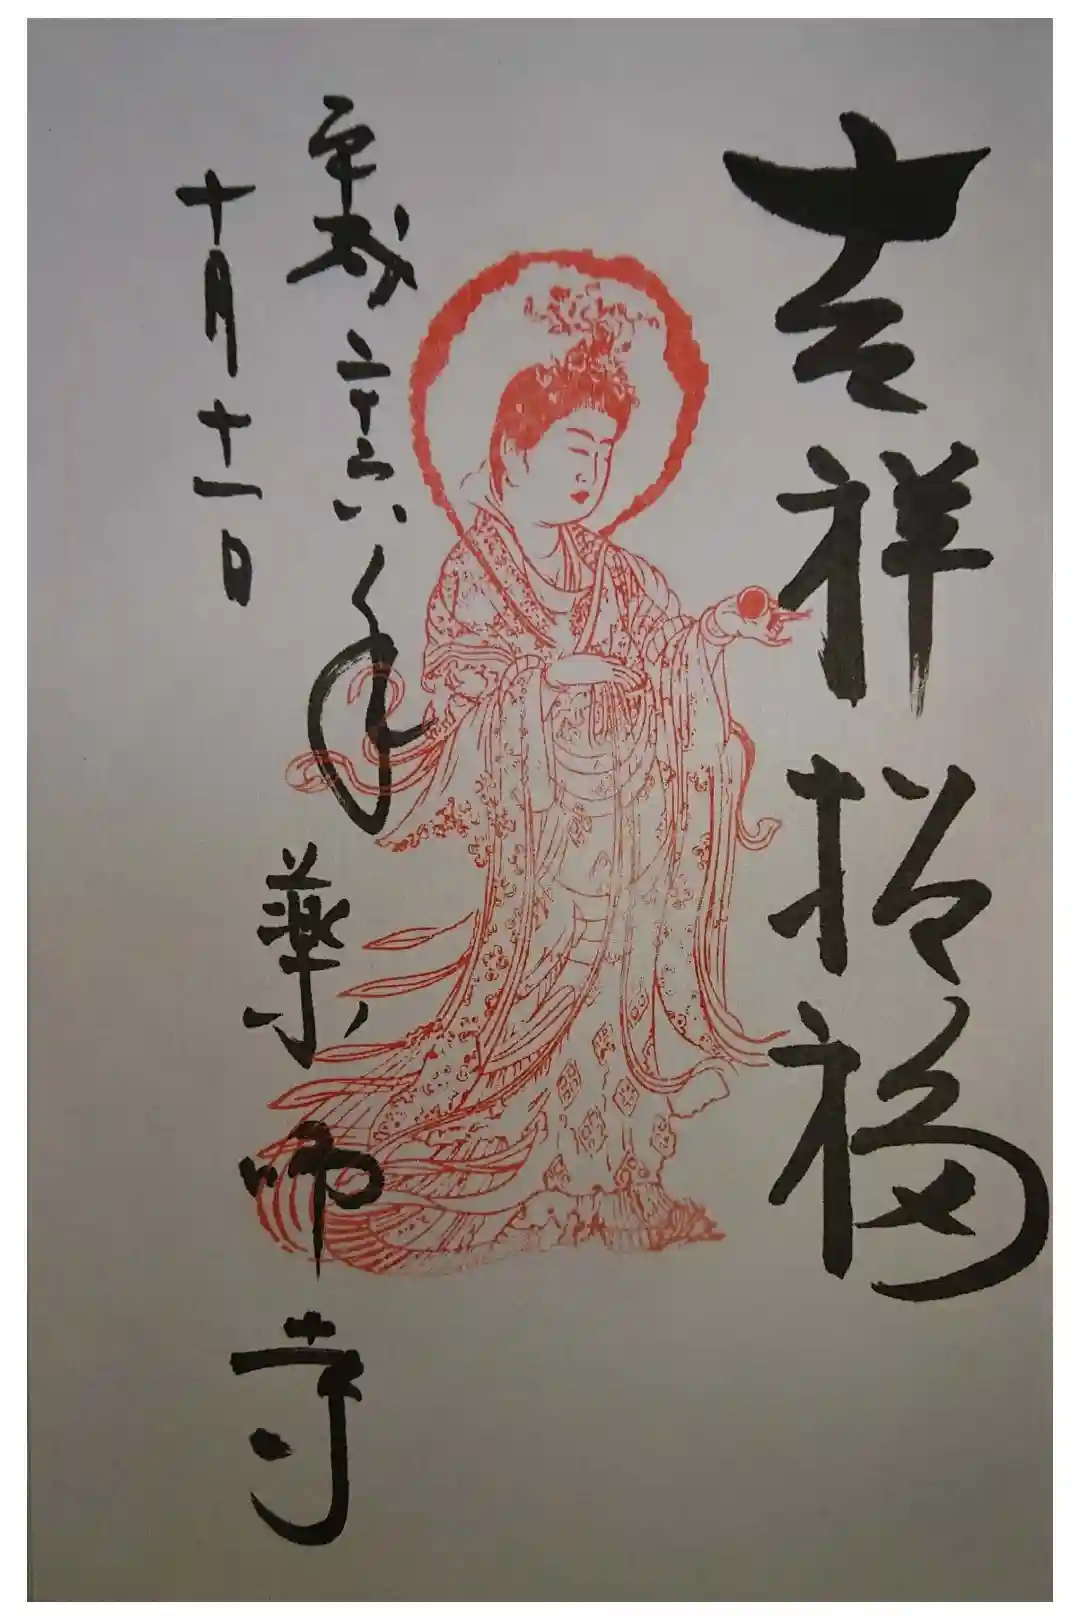 吉祥招福
平成二十六年
十月十一日
薬師寺